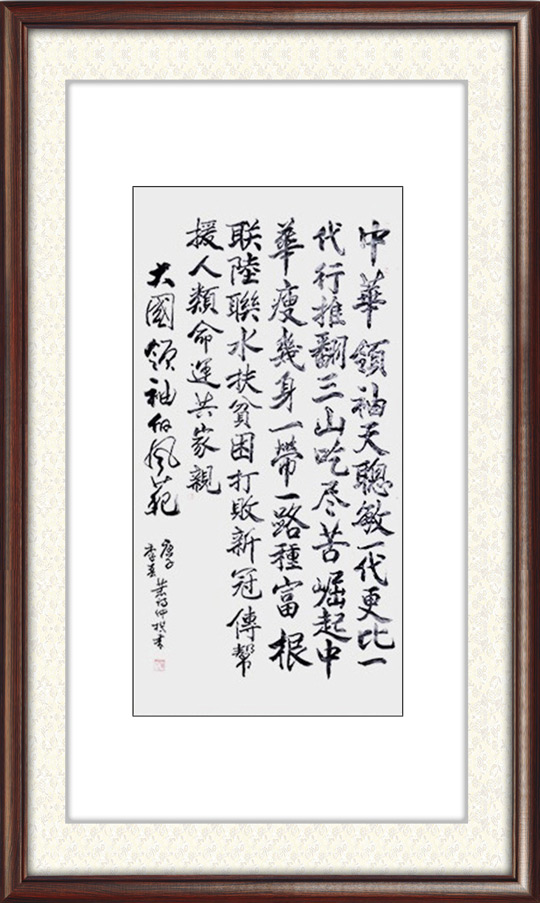 中華領袖天聰敏一代更比一
代行推翻三山吃尽苦崛起中
華瘦幾身一帶一路種富根
联陸聯水扶貧困打敗新冠傳幫
援人類命運共家親
大國領袖的風範
庚子
書